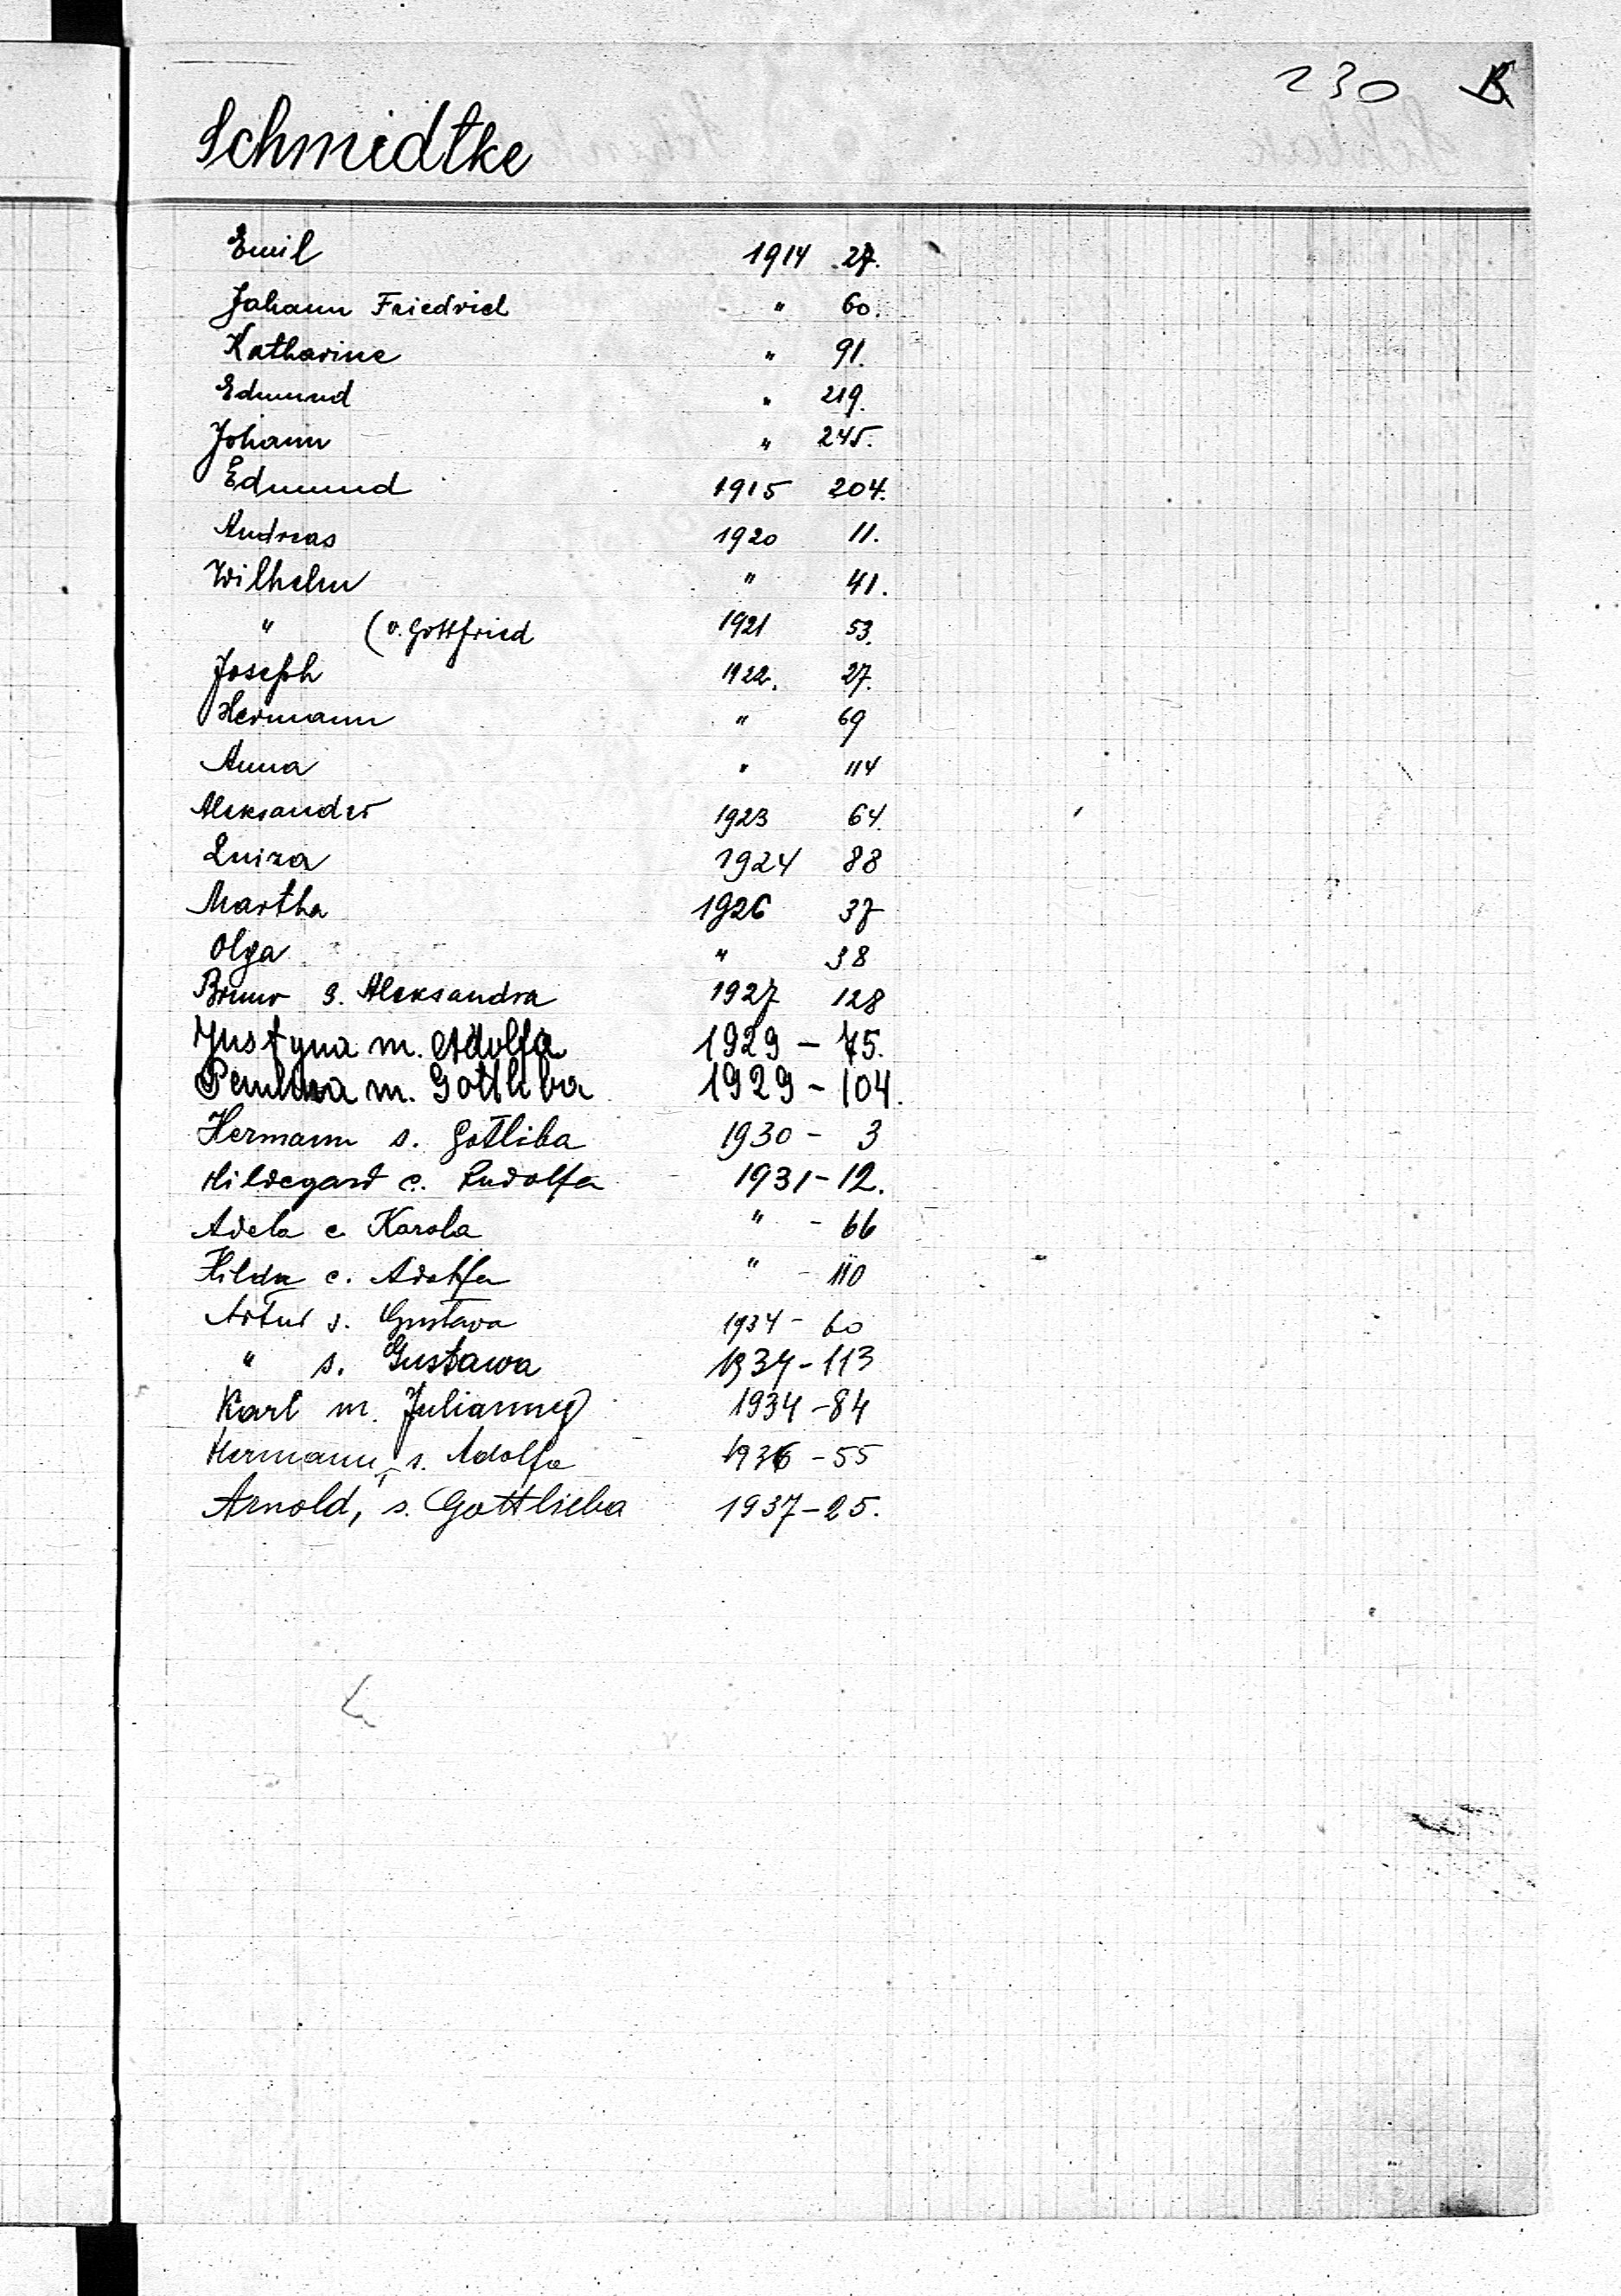 230 B
Schmidtke
Emil 1914 27.
Johann Friedrich " 60.
Katharine " 91.
Edmund " 219.
Johann " 245.
Edmund 1915 204.
Andreas 1920 11.
Wilhelm " 41.
" (v. Gottfried 1921 53.
Joseph 1922. 27.
Hermann " 69
Anna " 114
Aleksander 1923 64.
Luiza 1924 88
Martha 1926 37
Olga " 38
Bruno s. Aleksandra 1927 128
Justyna m. Adolfa 1929 - 75.
m. Gottliba 1929 - 104.
Hermann s. Gotliba 1930 - 3
Hildegard c. Rudolfa 1931 - 12.
Adela c. Karola " - 66
Hilda c. Adolfa " - 110
Artur s. Gustava 1934 - 60
" s. Gustawa 1934 - 113
Karl m. Julianny 1934 - 84
Hermann, s. Adolfa 1936 - 55
Arnold, s. Gottlieba 1937 - 25.